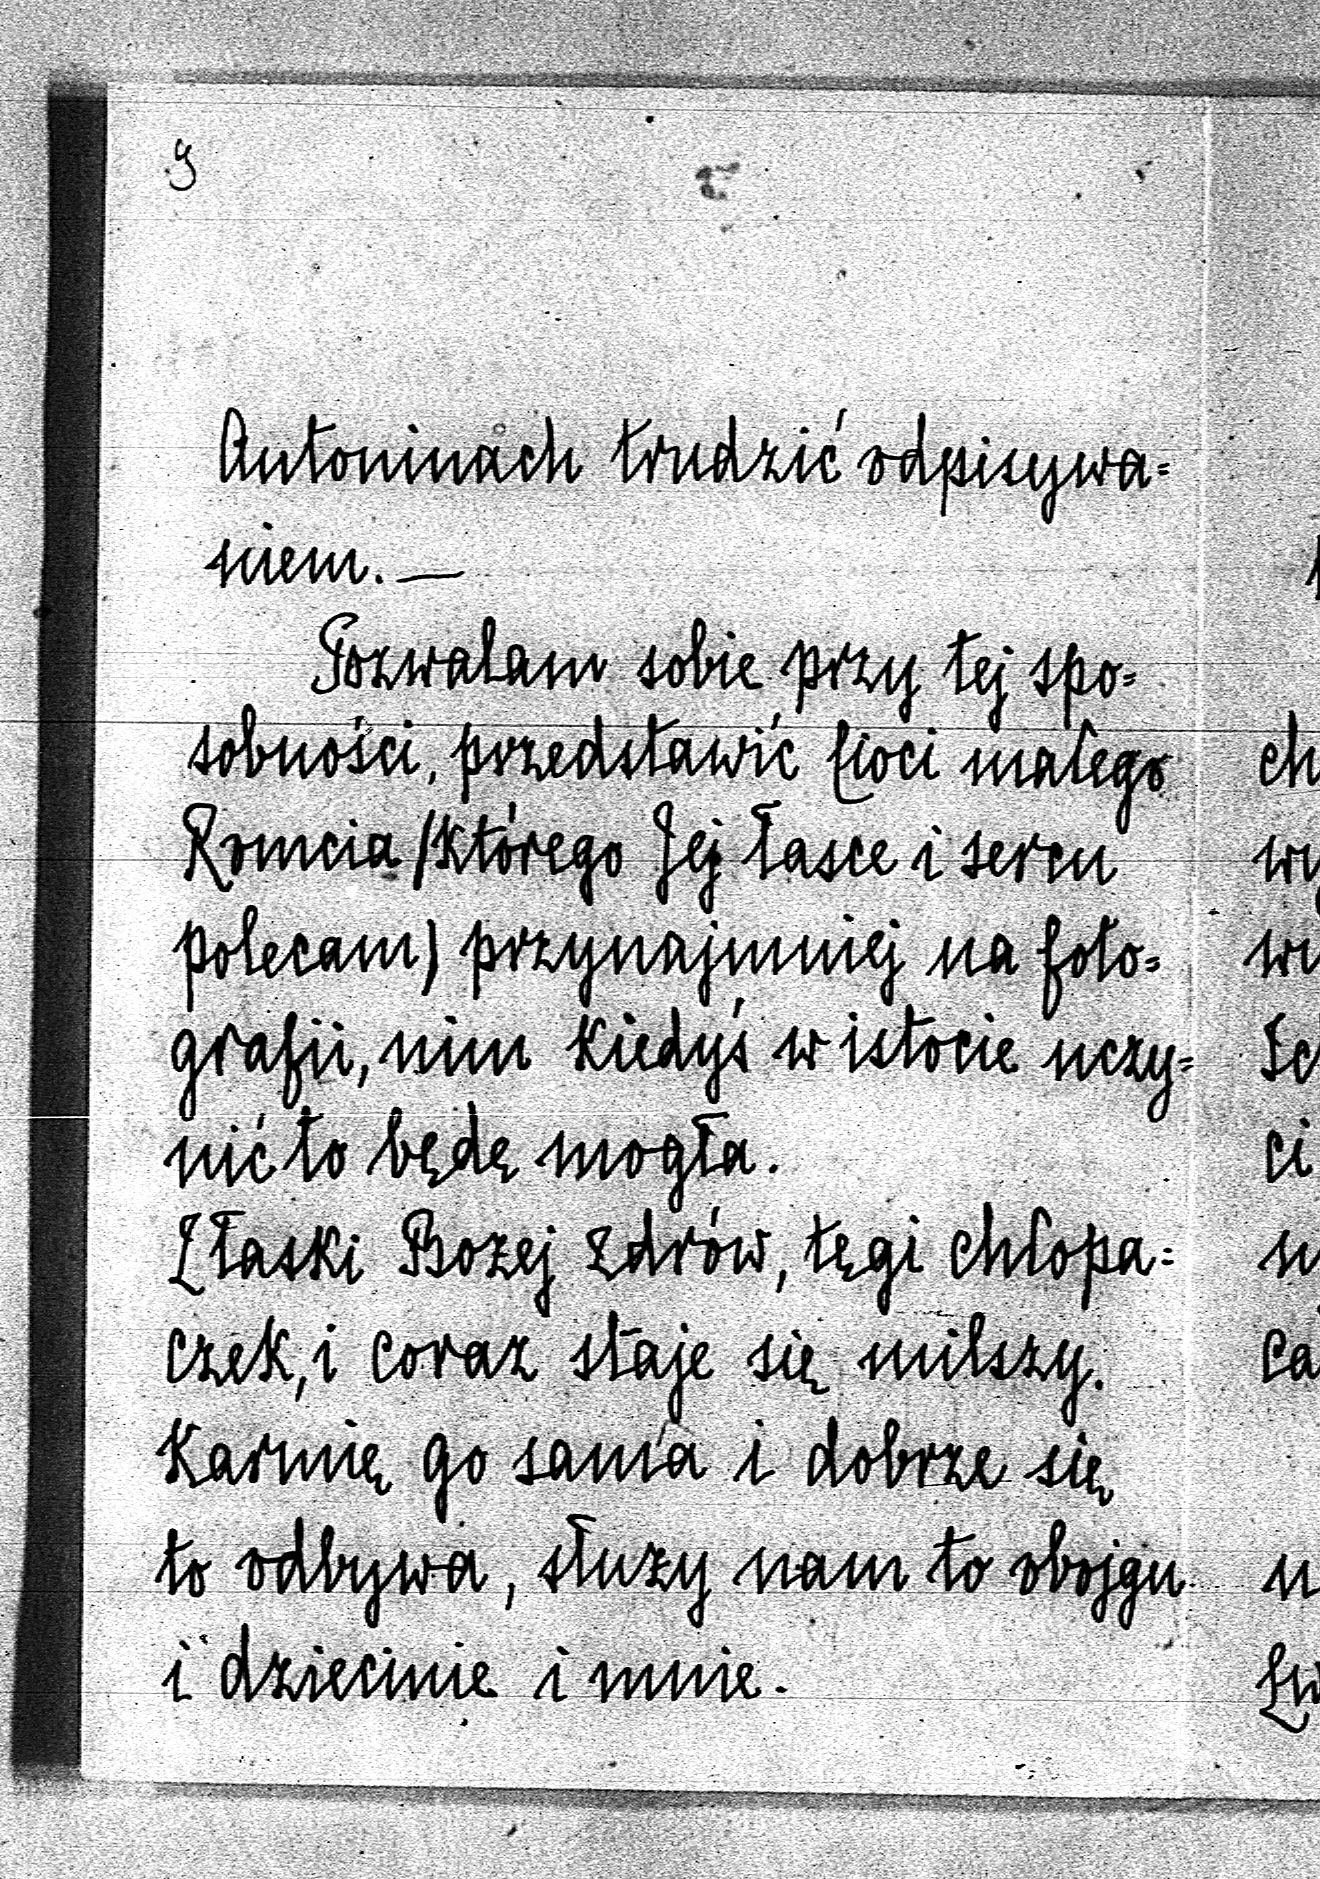 9
Antoninach trudzić odpisywa=
niem. —
Pozwalam sobie przy tej spo=
sobności, przedstawić Cioci małego
Romcia /którego Jej łasce i sercu
polecam) przynajmniej na foto=
grafii, nim kiedyś w istocie uczy=
nić to będę mogła.
Z łaski Bożej zdrów, tęgi chłopa=
czek, i coraz staje się milszy.
Karmię go sama i dobrze się
to odbywa, służy nam to obojgu
i dziecinie i mnie.